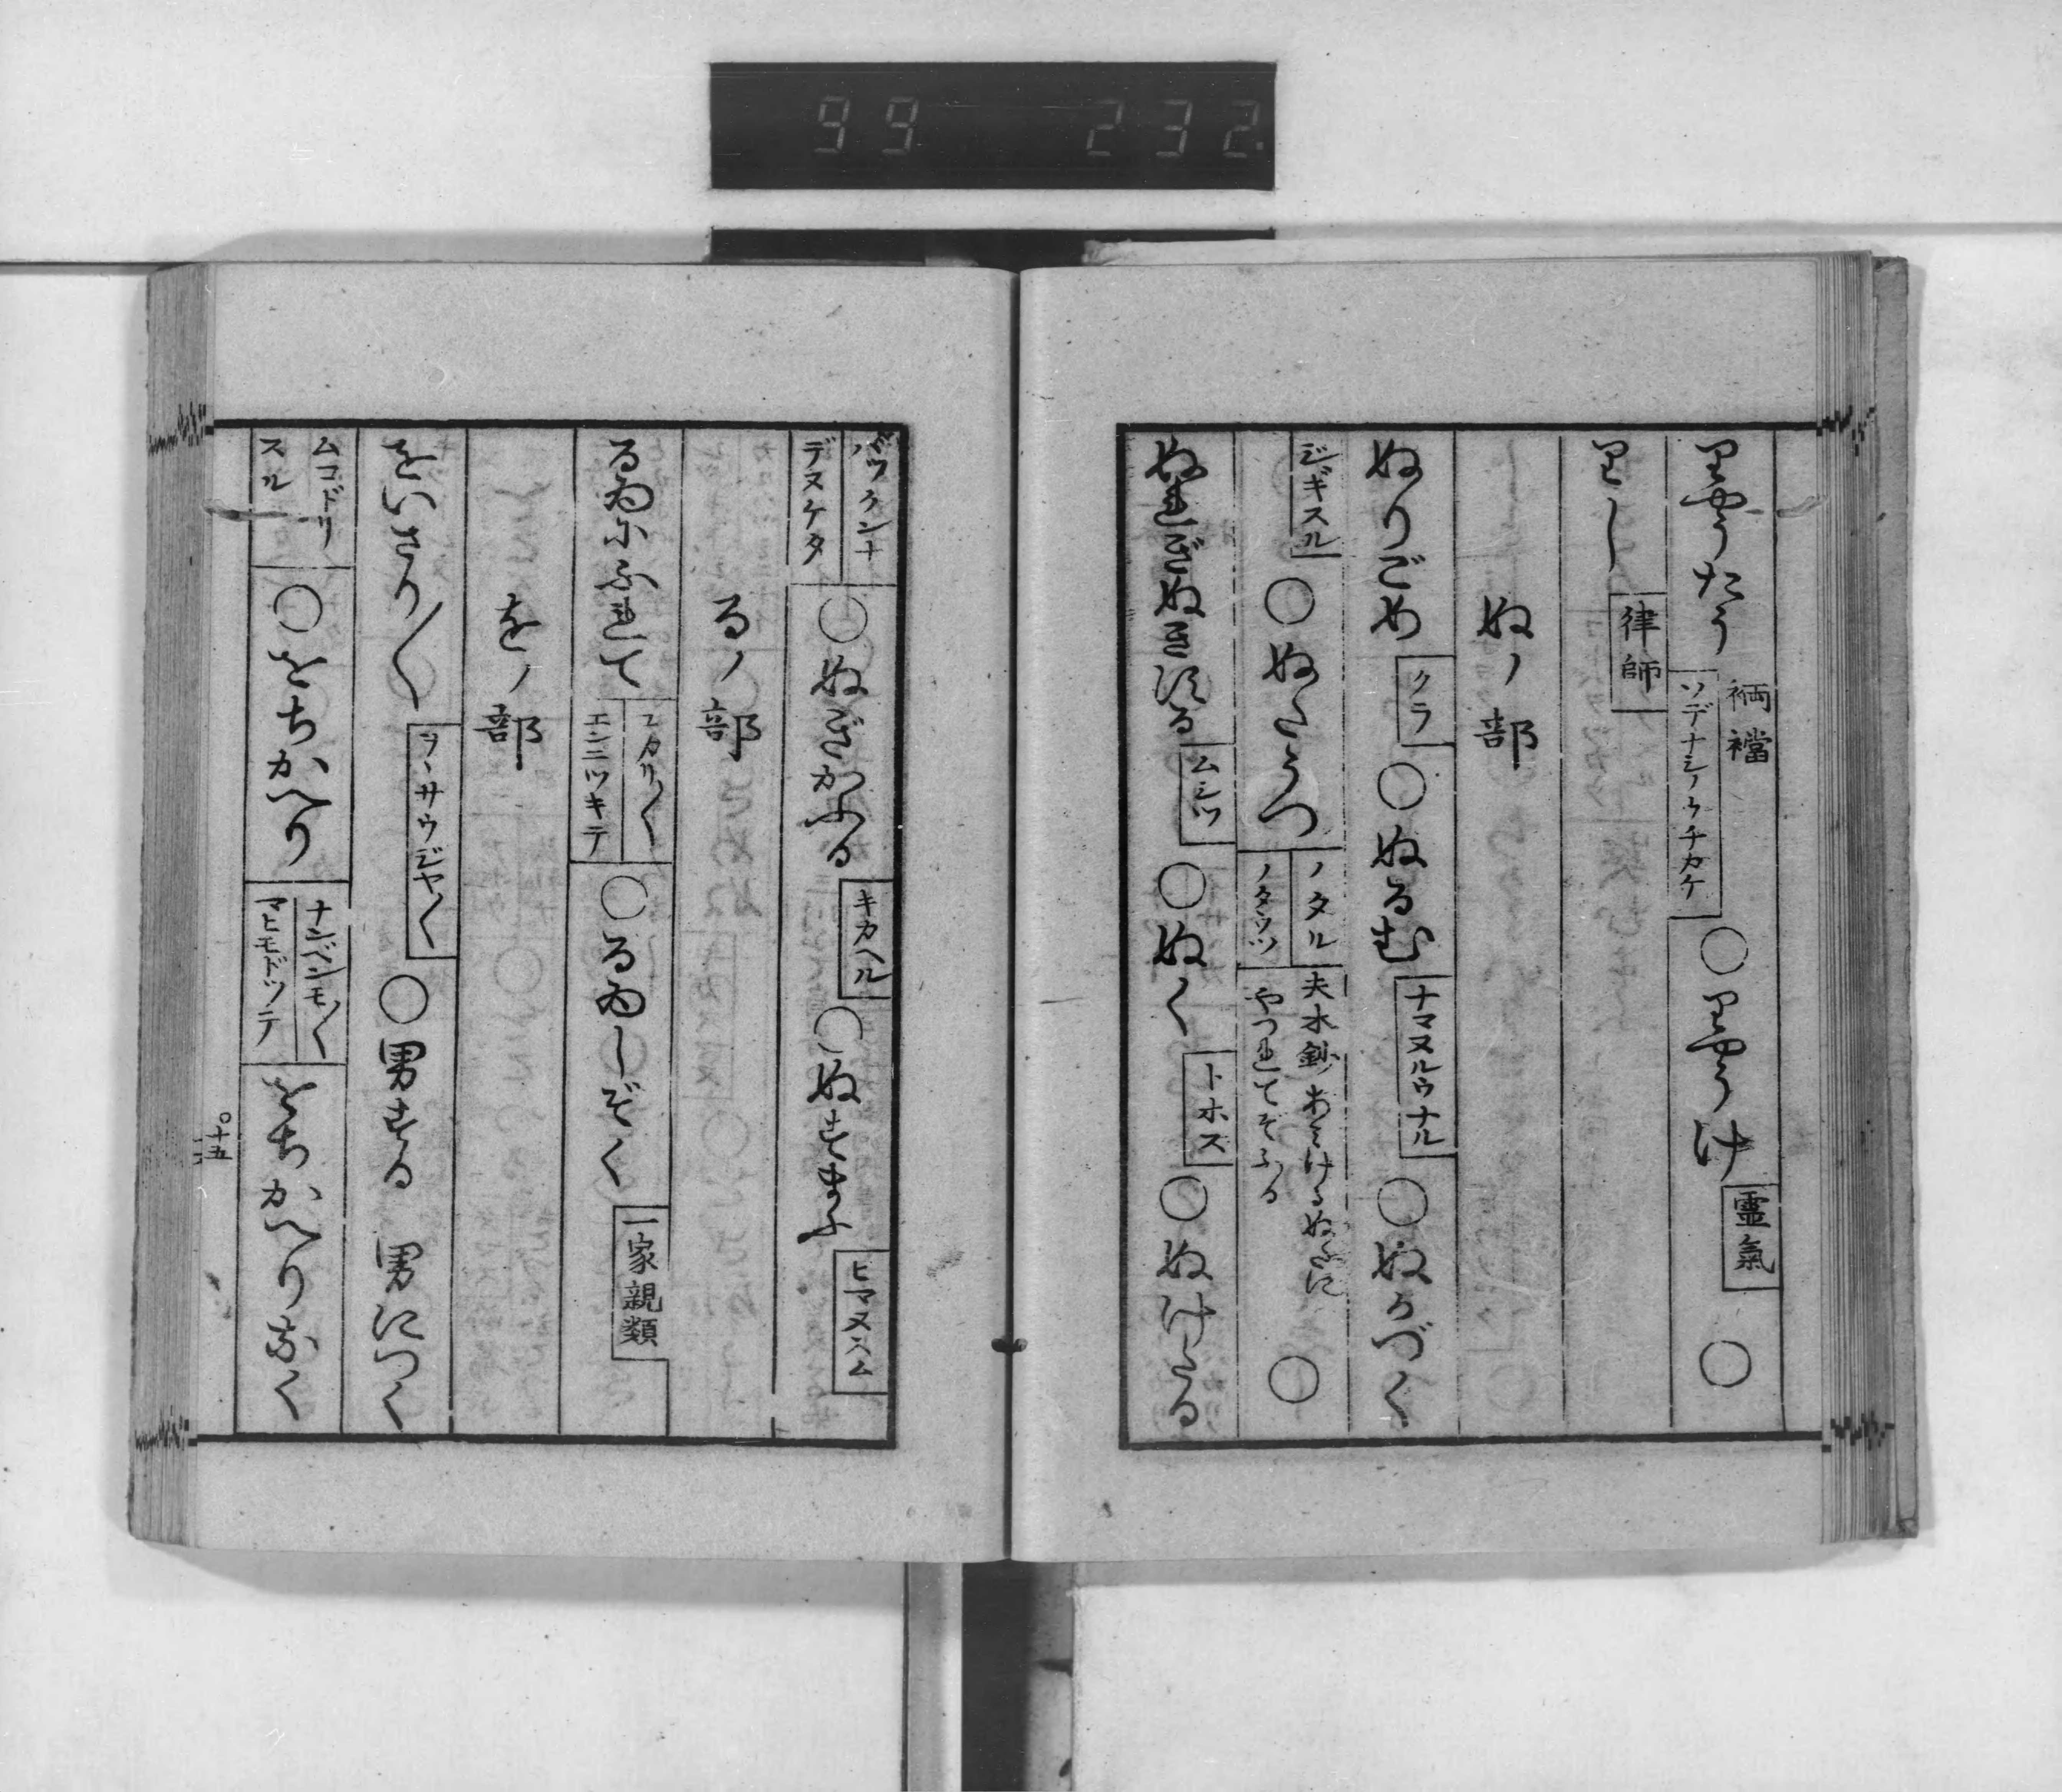 99 232
りやうたう 裲襠 ソデナシノウチカケ ○りやうけ 霊氣 ○
りし 律師
ぬノ部
ぬりごめ クラ ○ぬるむ ナマヌルウナル ○ぬかづく
ジギスル ○ぬたうつ ノタル ノタウツ 夫木鈔 あみけるぬたに やつれてぞふる ○
ぬれぎぬきする ムシツ ○ぬく トホス ○ぬけたる
バツクンナ デヌケタ ○ぬぎかふる キカヘル ○ぬすまふ ヒマヌスム
るノ部
るゐにふれて エンニツキテ ○るゐしぞく 一家親類
をノ部
をいさり〱 ヲヽサウジヤ〱 ○男する 男につく
ムコドリ スル ○をちかへり ナンベンモ〱 マヒモドツテ をちかへりなく
十五